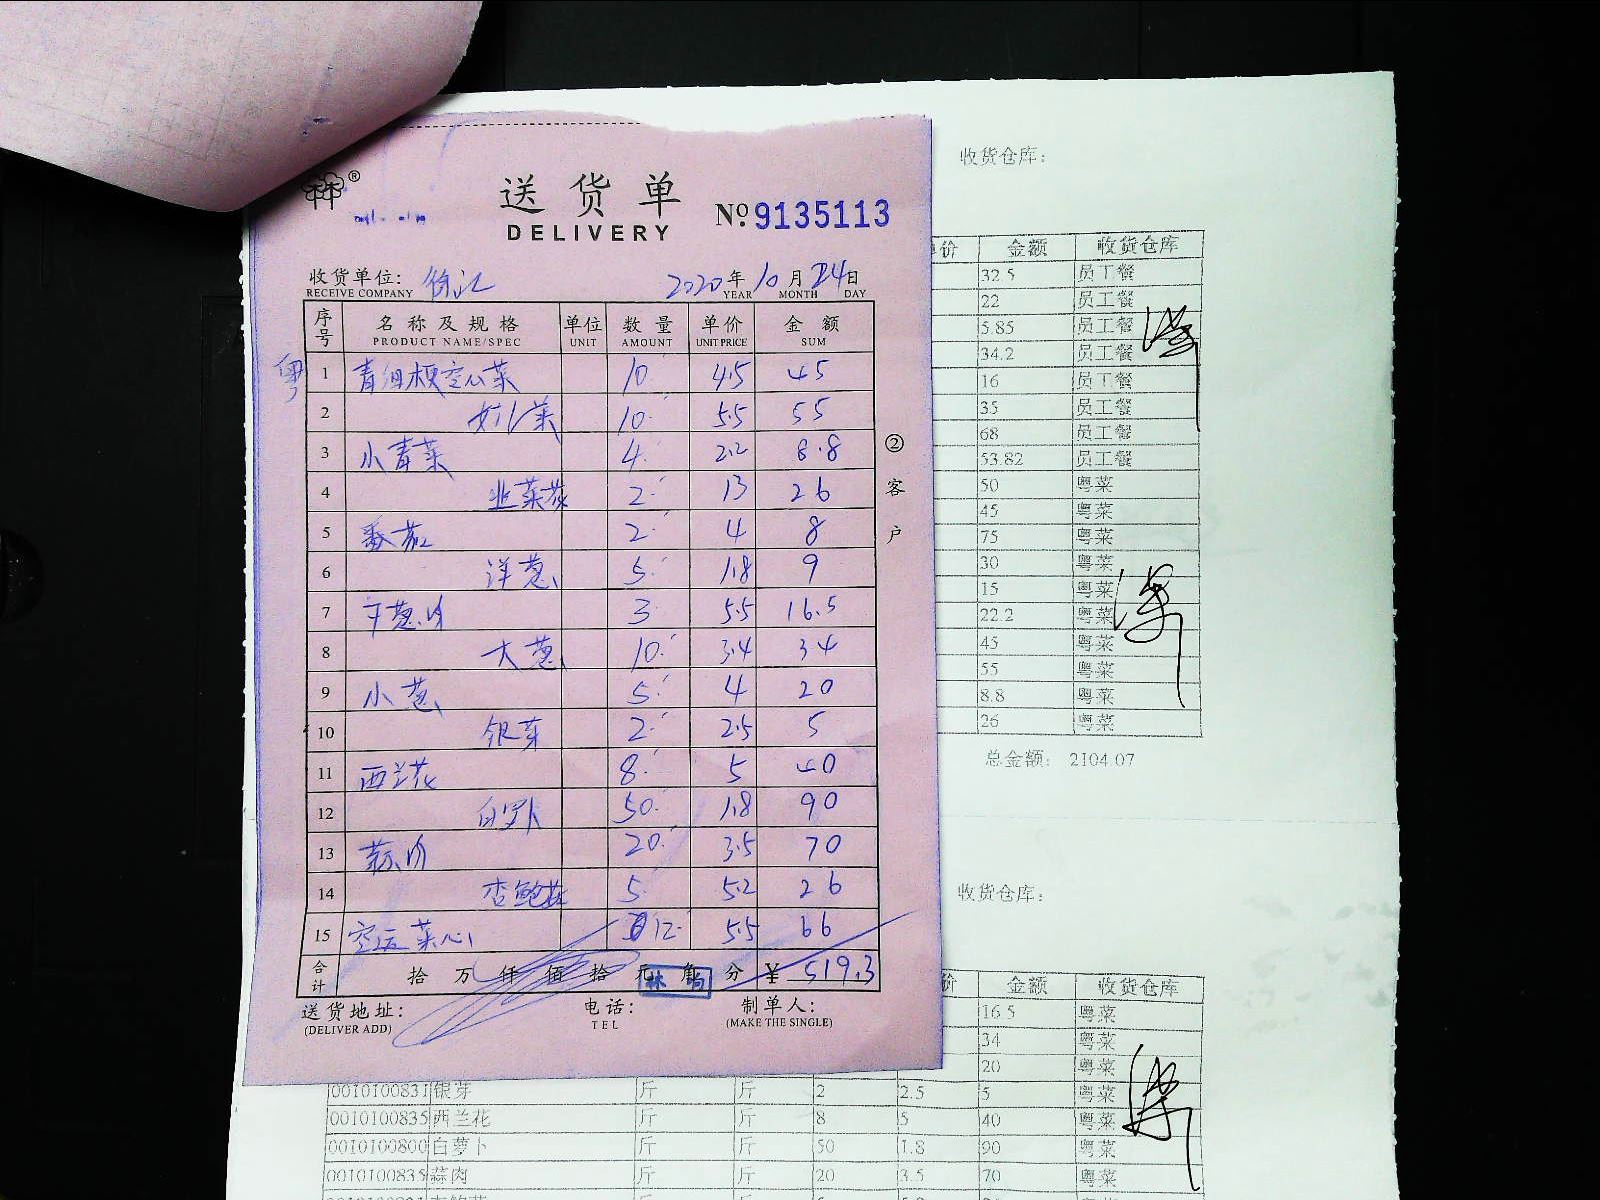 收货仓库:
送货单
DELIVERY
No.9135113
收货单位: 徐汇 2020年10月24日
RECEIVE COMPANY YEAR MONTH DAY
序号 名称及规格 单位 数量 单价 金额
PRODUCT NAME/SPEC UNIT AMOUNT UNIT PRICE SUM
粤
1 青细梗空心菜 10 4.5 45
2 10 5.5 55
3 小青菜 4 2.2 8.8
4 韭菜 2 13 26
5 番茄 2 4 8
6 洋葱 5 1.8 9
7 干葱肉 3 5.5 16.5
8 大葱 10 3.4 34
9 小葱 5 4 20
10 银芽 2 2.5 5
11 西兰花 8 5 40
12 白萝卜 50 1.8 90
13 蒜肉 20 3.5 70
14 杏鲍菇 5 5.2 26
15 空运菜心 12 5.5 66
合计 拾万仟佰拾元角分 ¥ 519.3
送货地址: 电话: 制单人:
(DELIVER ADD) TEL (MAKE THE SINGLE)
②客户
价 金额 收货仓库
32.5 员工餐
22 员工餐
5.85 员工餐
34.2 员工餐
16 员工餐
35 员工餐
68 员工餐
53.82 员工餐
50 粤菜
45 粤菜
75 粤菜
30 粤菜
15 粤菜
22.2 粤菜
45 粤菜
55 粤菜
8.8 粤菜
26 粤菜
总金额: 2104.07
收货仓库:
价 金额 收货仓库
16.5 粤菜
34 粤菜
20 粤菜
0010100831 银芽 斤 斤 2 2.5 5 粤菜
0010100835 西兰花 斤 斤 8 5 40 粤菜
0010100800 白萝卜 斤 斤 50 1.8 90 粤菜
0010100835 蒜肉 斤 斤 20 3.5 70 粤菜